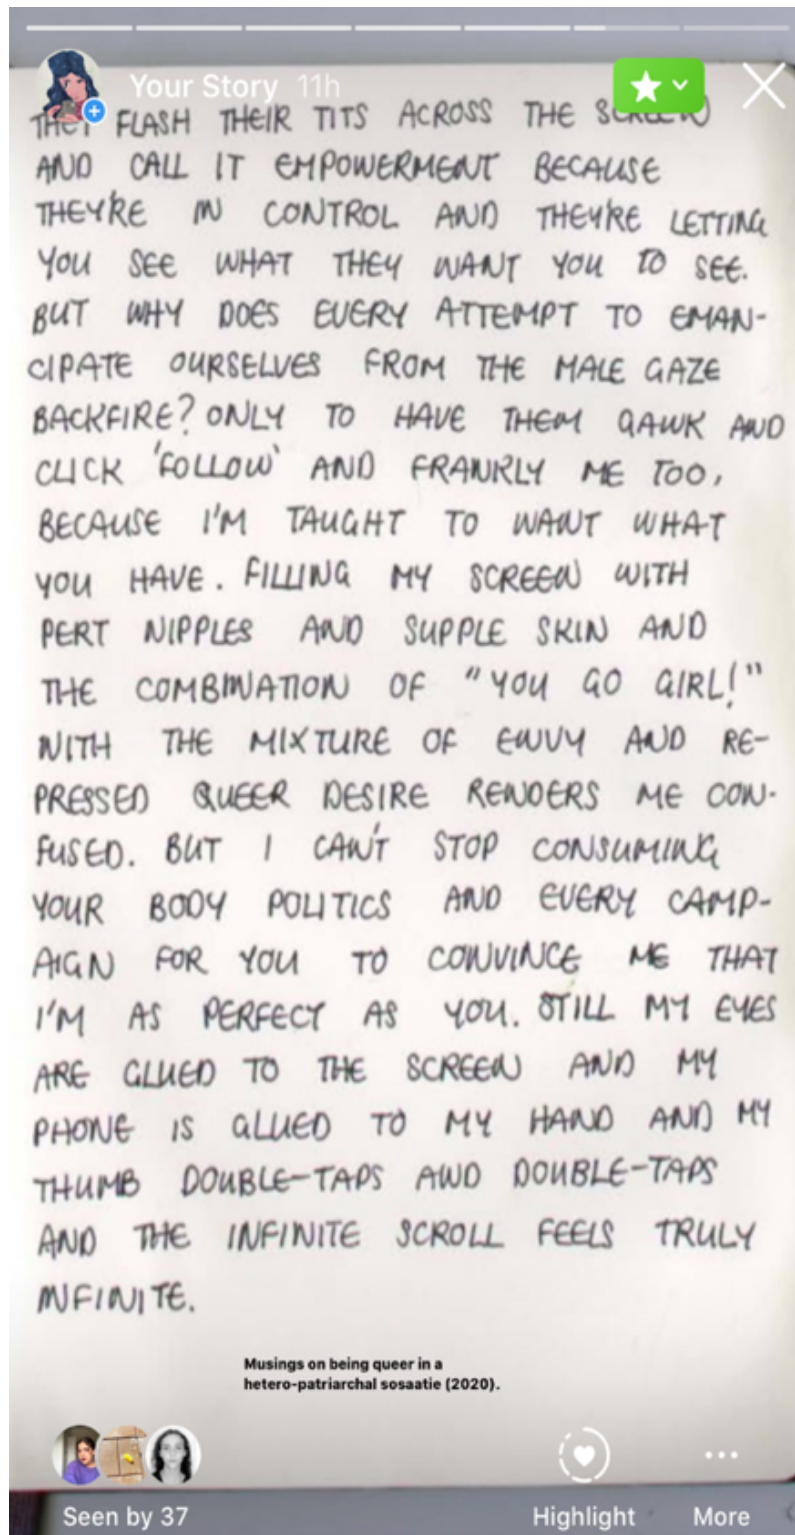 Your Story 11h
THEY FLASH THEIR TITS ACROSS THE SCREEN
AND CALL IT EMPOWERMENT BECAUSE
THEY'RE IN CONTROL AND THEY'RE LETTING
YOU SEE WHAT THEY WANT YOU TO SEE.
BUT WHY DOES EVERY ATTEMPT TO EMAN-
CIPATE OURSELVES FROM THE MALE GAZE
BACKFIRE? ONLY TO HAVE THEM GAWK AND
CLICK 'FOLLOW' AND FRANKLY ME TOO,
BECAUSE I'M TAUGHT TO WANT WHAT
YOU HAVE. FILLING MY SCREEN WITH
PERT NIPPLES AND SUPPLE SKIN AND
THE COMBINATION OF "YOU GO GIRL!"
WITH THE MIXTURE OF ENVY AND RE-
PRESSED QUEER DESIRE RENDERS ME CON-
FUSED. BUT I CAN'T STOP CONSUMING
YOUR BODY POLITICS AND EVERY CAMP-
AIGN FOR YOU TO CONVINCE ME THAT
I'M AS PERFECT AS YOU. STILL MY EYES
ARE GLUED TO THE SCREEN AND MY
PHONE IS GLUED TO MY HAND AND MY
THUMB DOUBLE-TAPS AND DOUBLE-TAPS
AND THE INFINITE SCROLL FEELS TRULY
INFINITE.
Musings on being queer in a
hetero-patriarchal sosaatie (2020).
Seen by 37 Highlight More